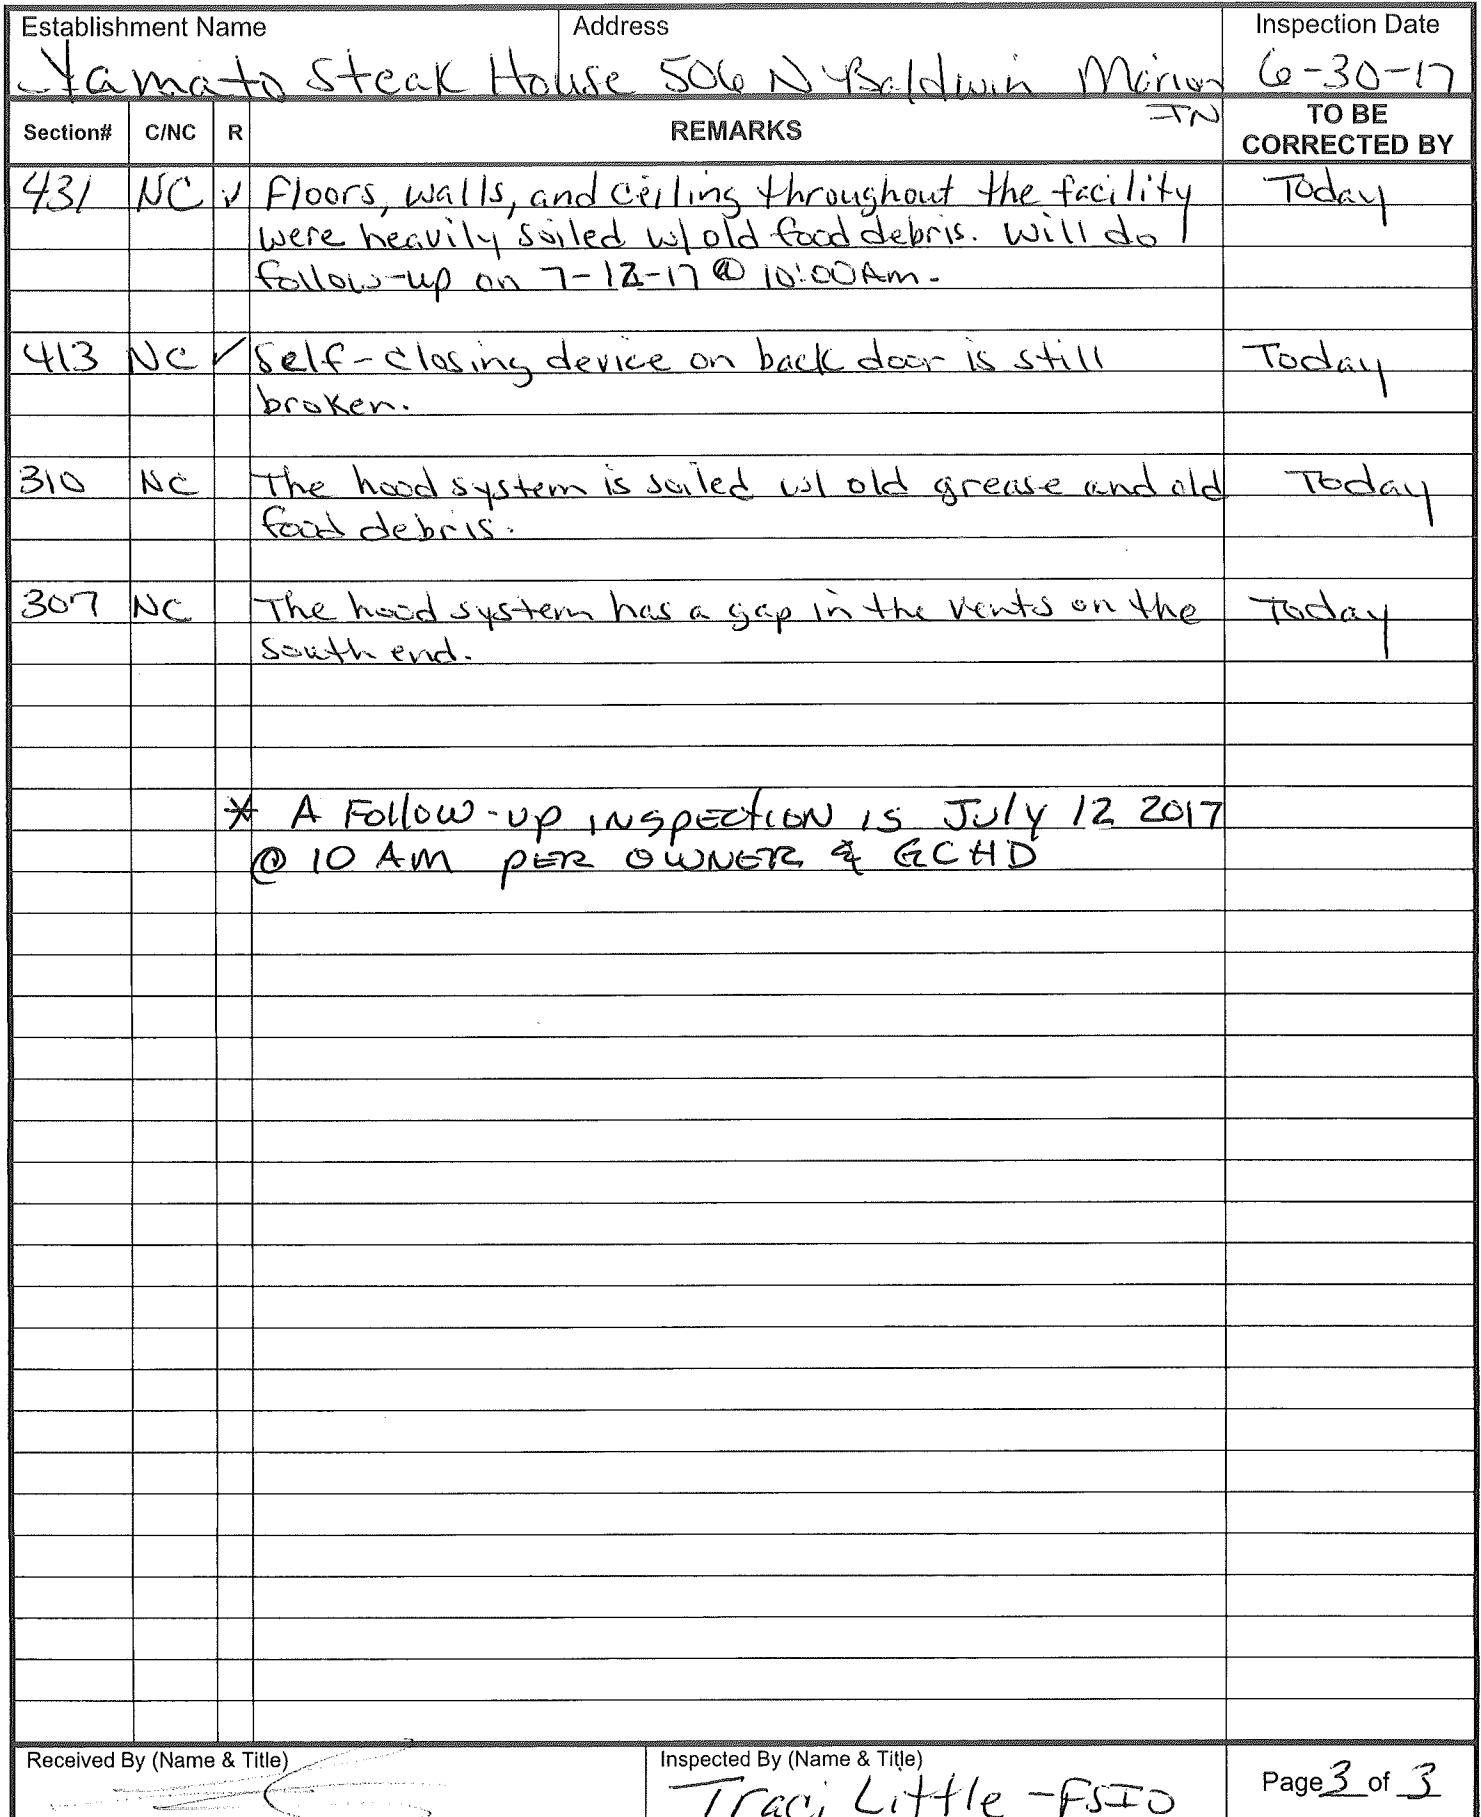 Establishment Name Address Inspection Date
Yamato Steak House 506 N Baldwin Marion 6-30-17
IN
Section# C/NC R REMARKS TO BE CORRECTED BY
431 NC ✓ Floors, walls, and ceiling throughout the facility Today
were heavily soiled w/ old food debris. Will do
follow-up on 7-12-17 @ 10:00Am.
413 NC ✓ Self-closing device on back door is still Today
broken.
310 NC The hood system is soiled w/ old grease and old Today
food debris.
307 NC The hood system has a gap in the vents on the Today
south end.
* A Follow-up INSPECTION IS July 12 2017
@ 10 AM PER OWNER & GCHD
Received By (Name & Title) Inspected By (Name & Title)
Traci Little - FSIO Page 3 of 3